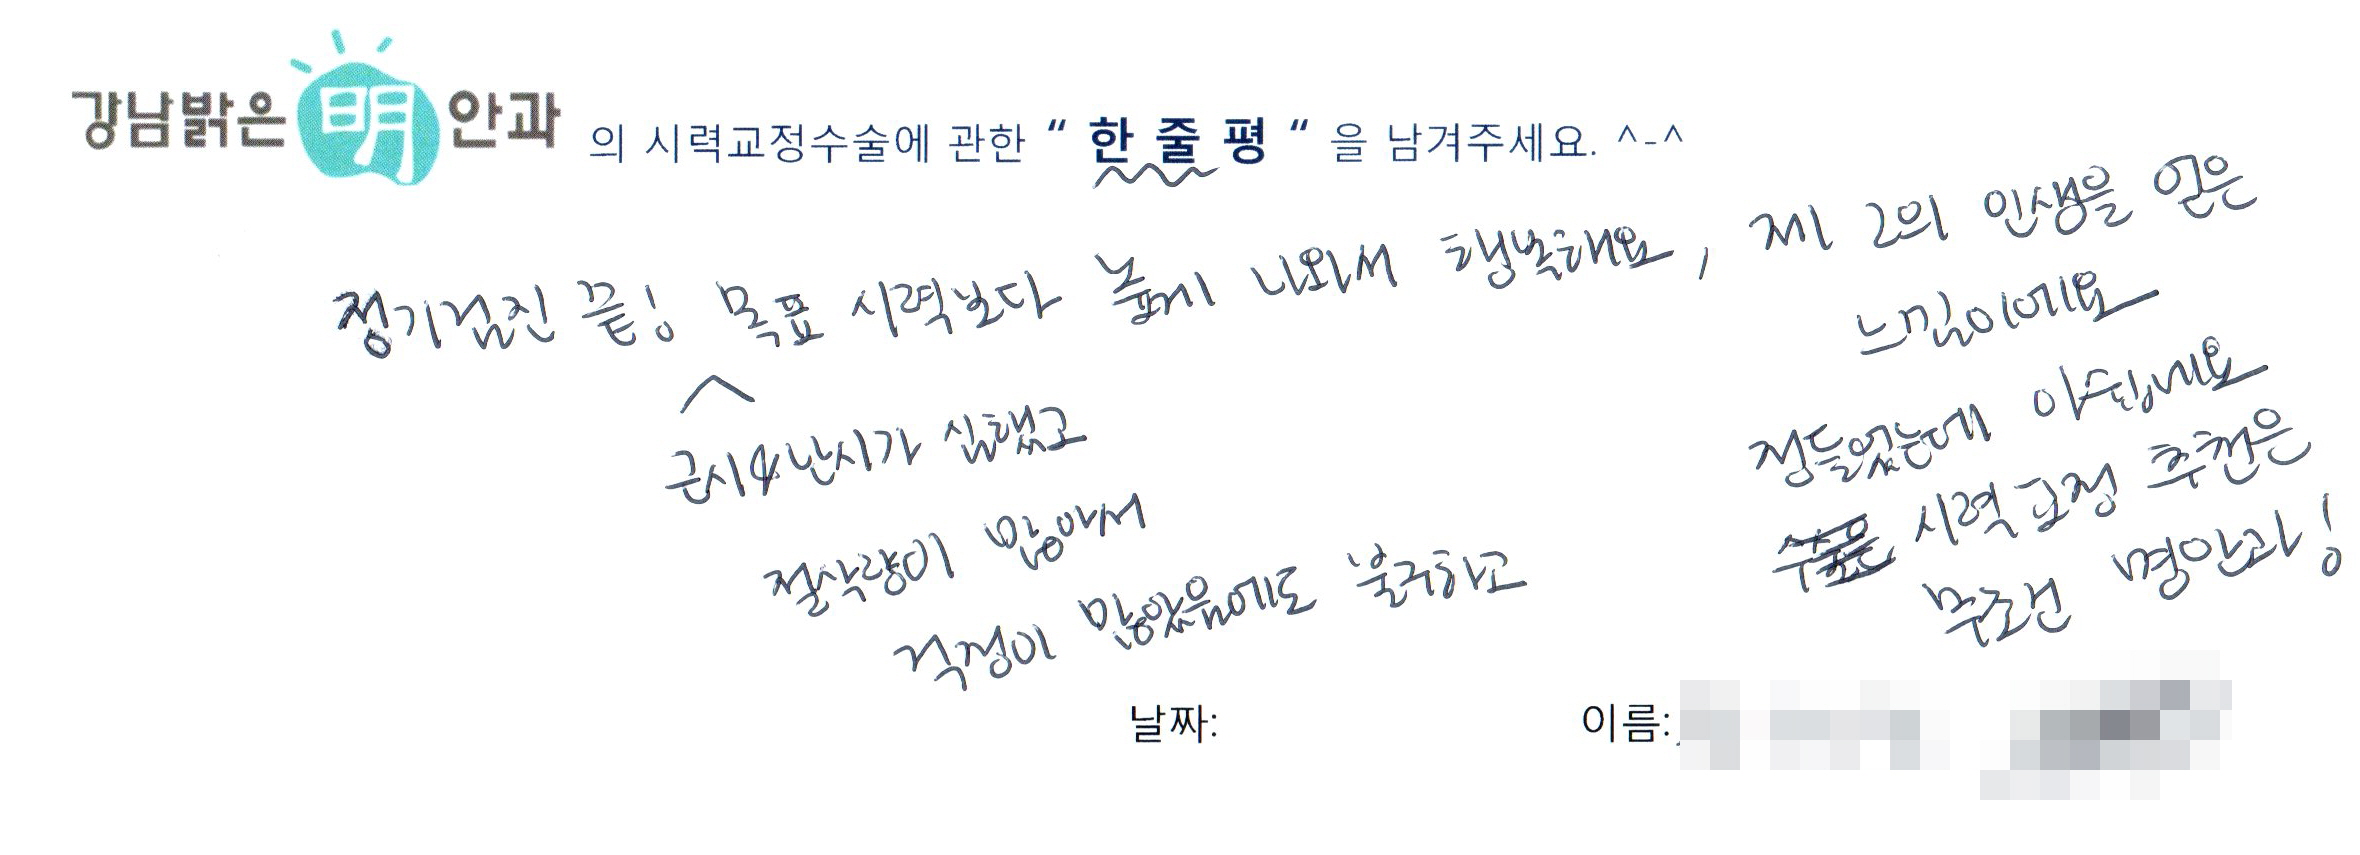 강남밝은 明 안과 의 시력교정수술에 관한 “ 한 줄 평 “ 을 남겨주세요. ^-^
정기검진 끝! 목표 시력보다 높게 나와서 행복해요, 제 2의 인생을 얻은
느낌이에요
근시&난시가 심했고
절삭량이 많아서
걱정이 많았음에도 불구하고
정들었는데 아쉽네요
시력교정 추천은
무조건 명안과!
날짜:
이름: